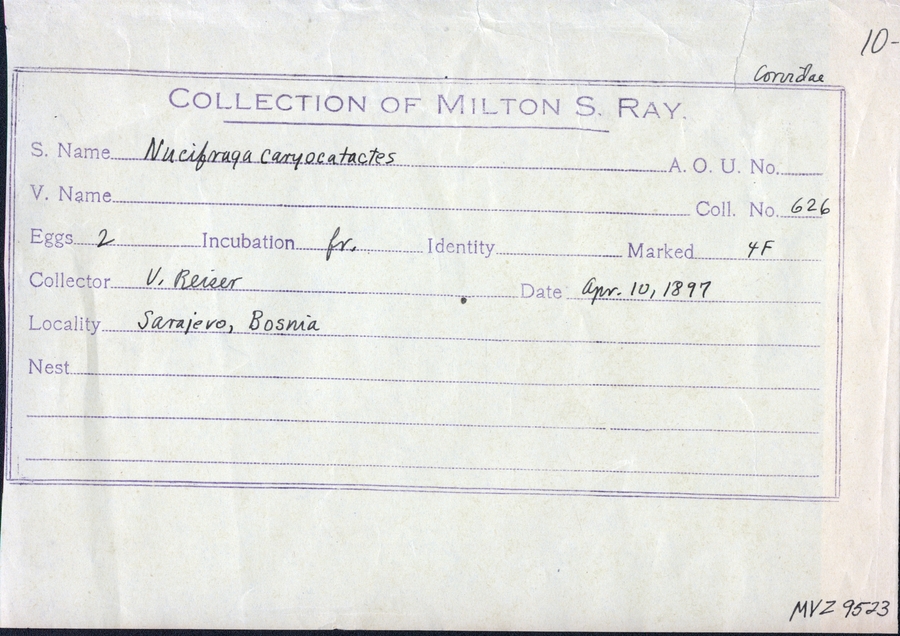 10-
Corvidae
COLLECTION OF MILTON S. RAY.
S. Name Nucifraga caryocatactes A. O. U. No.
V. Name Coll. No. 626
Eggs 2 Incubation fr. Identity Marked 4F
Collector V. Reiser Date Apr. 10, 1897
Locality Sarajevo, Bosnia
Nest
MVZ 9523